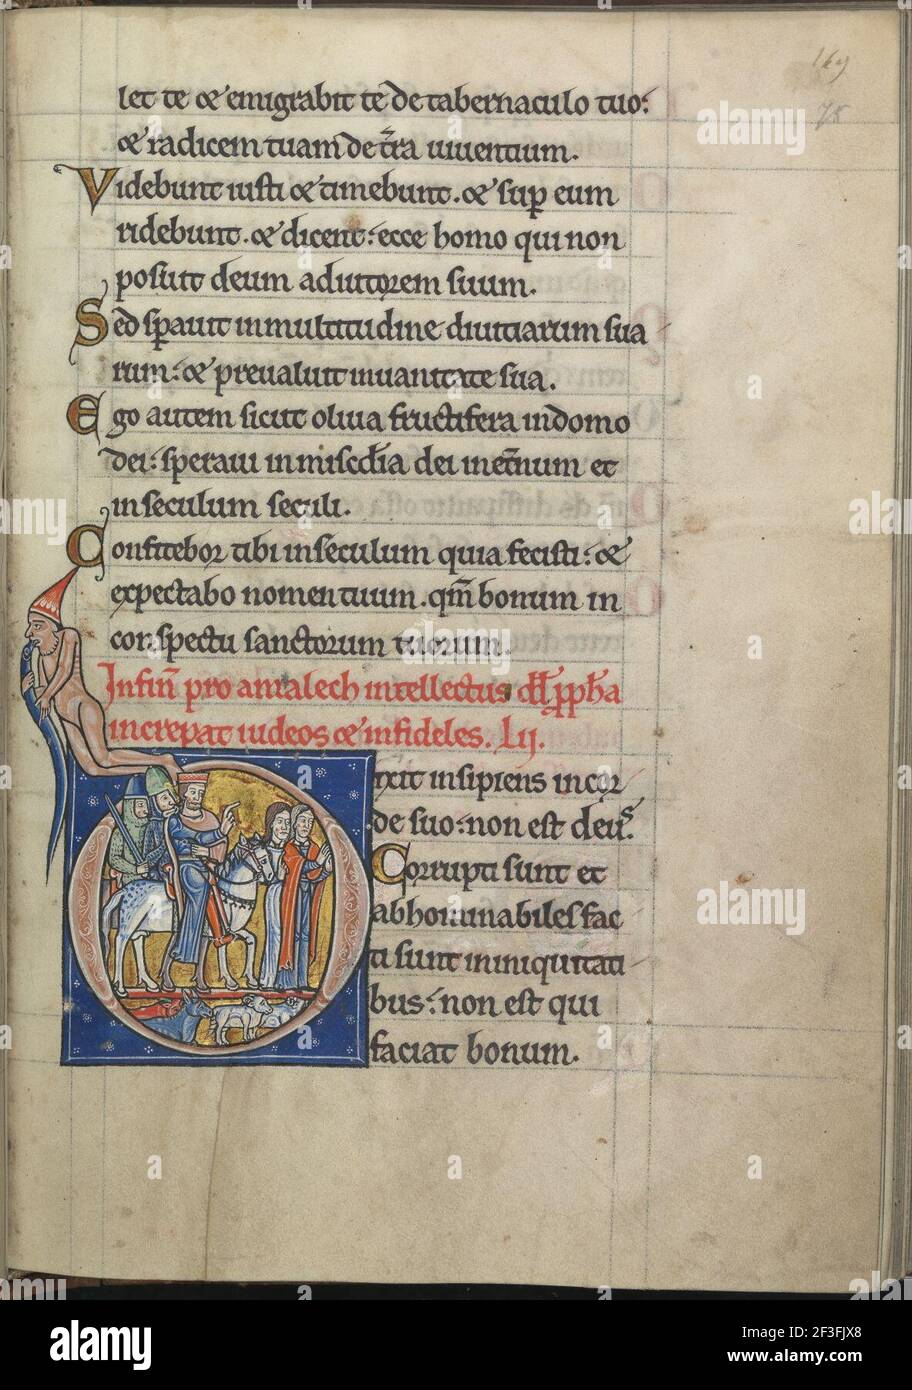 169
75
let te & emigrabit te de tabernaculo tuo:
& radicem tuam de t̄ra uiuentium.
Videbunt iusti & timebunt. & sup eum
ridebunt. & dicent: ecce homo qui non
posuit deum adiutorem suum.
Sed sꝑauit in multitudine diuitiarum sua
rum: & preualuit in uanitate sua.
Ego autem sicut oliua fructifera in domo
dei: speraui in misc̄dia dei in et̄num et
in seculum seculi.
Confitebor tibi in seculum quia fecisti: &
expectabo nomen tuum. qm̄ bonum in
conspectu sanctorum tuorum.
In fin̄ pro amalech intellectus dd̄ ꝓph̄a
increpat iudeos & infideles. Lij.
ixit insipiens in cor
de suo: non est deus.
Corrupti sunt et
abhominabiles fac
ti sunt in iniquitati
bus: non est qui
faciat bonum.
alamy
Image ID: 2F3FJX8
www.alamy.com